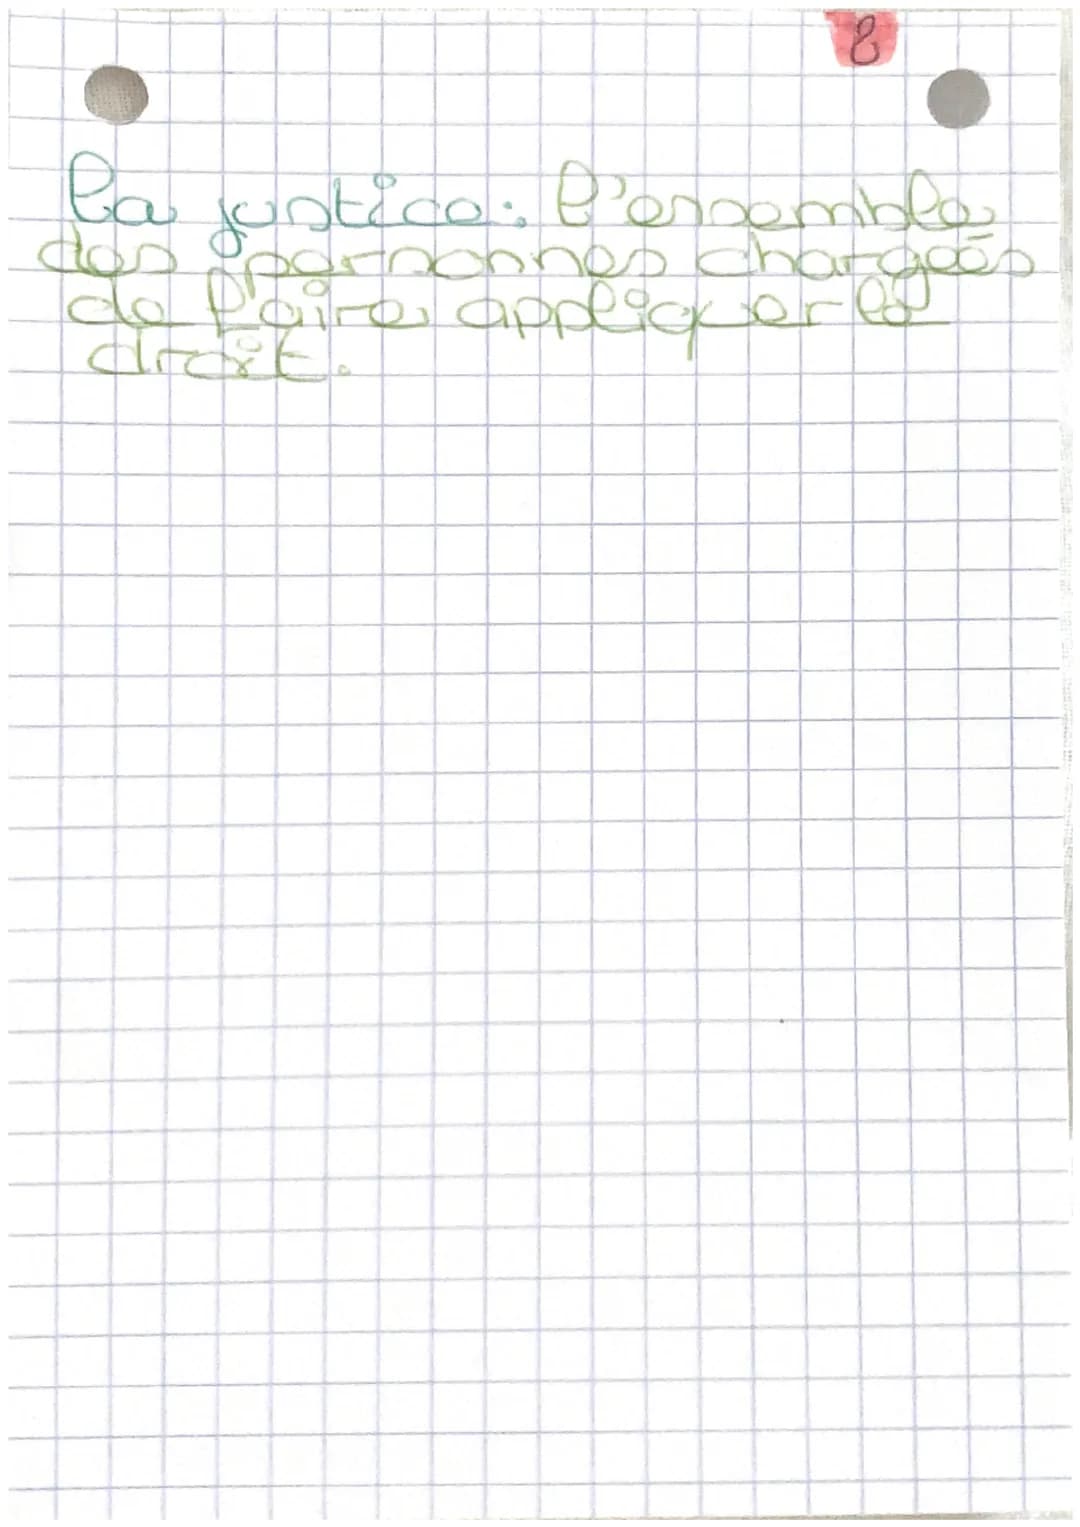 8
la justice: l'ensemble
des personnes chargées
de faire appliquer le
droit.